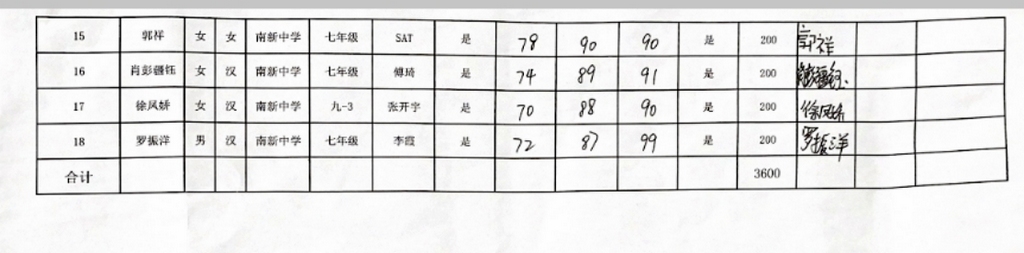 15 郭祥 女 女 南新中学 七年级 SAT 是 78 90 90 是 200 郭祥
16 肖彭疆钰 女 汉 南新中学 七年级 傅琦 是 74 89 91 是 200
17 徐凤娇 女 汉 南新中学 九-3 张开宇 是 70 88 90 是 200 徐凤娇
18 罗振洋 男 汉 南新中学 七年级 李霞 是 72 87 99 是 200 罗振洋
合计 3600